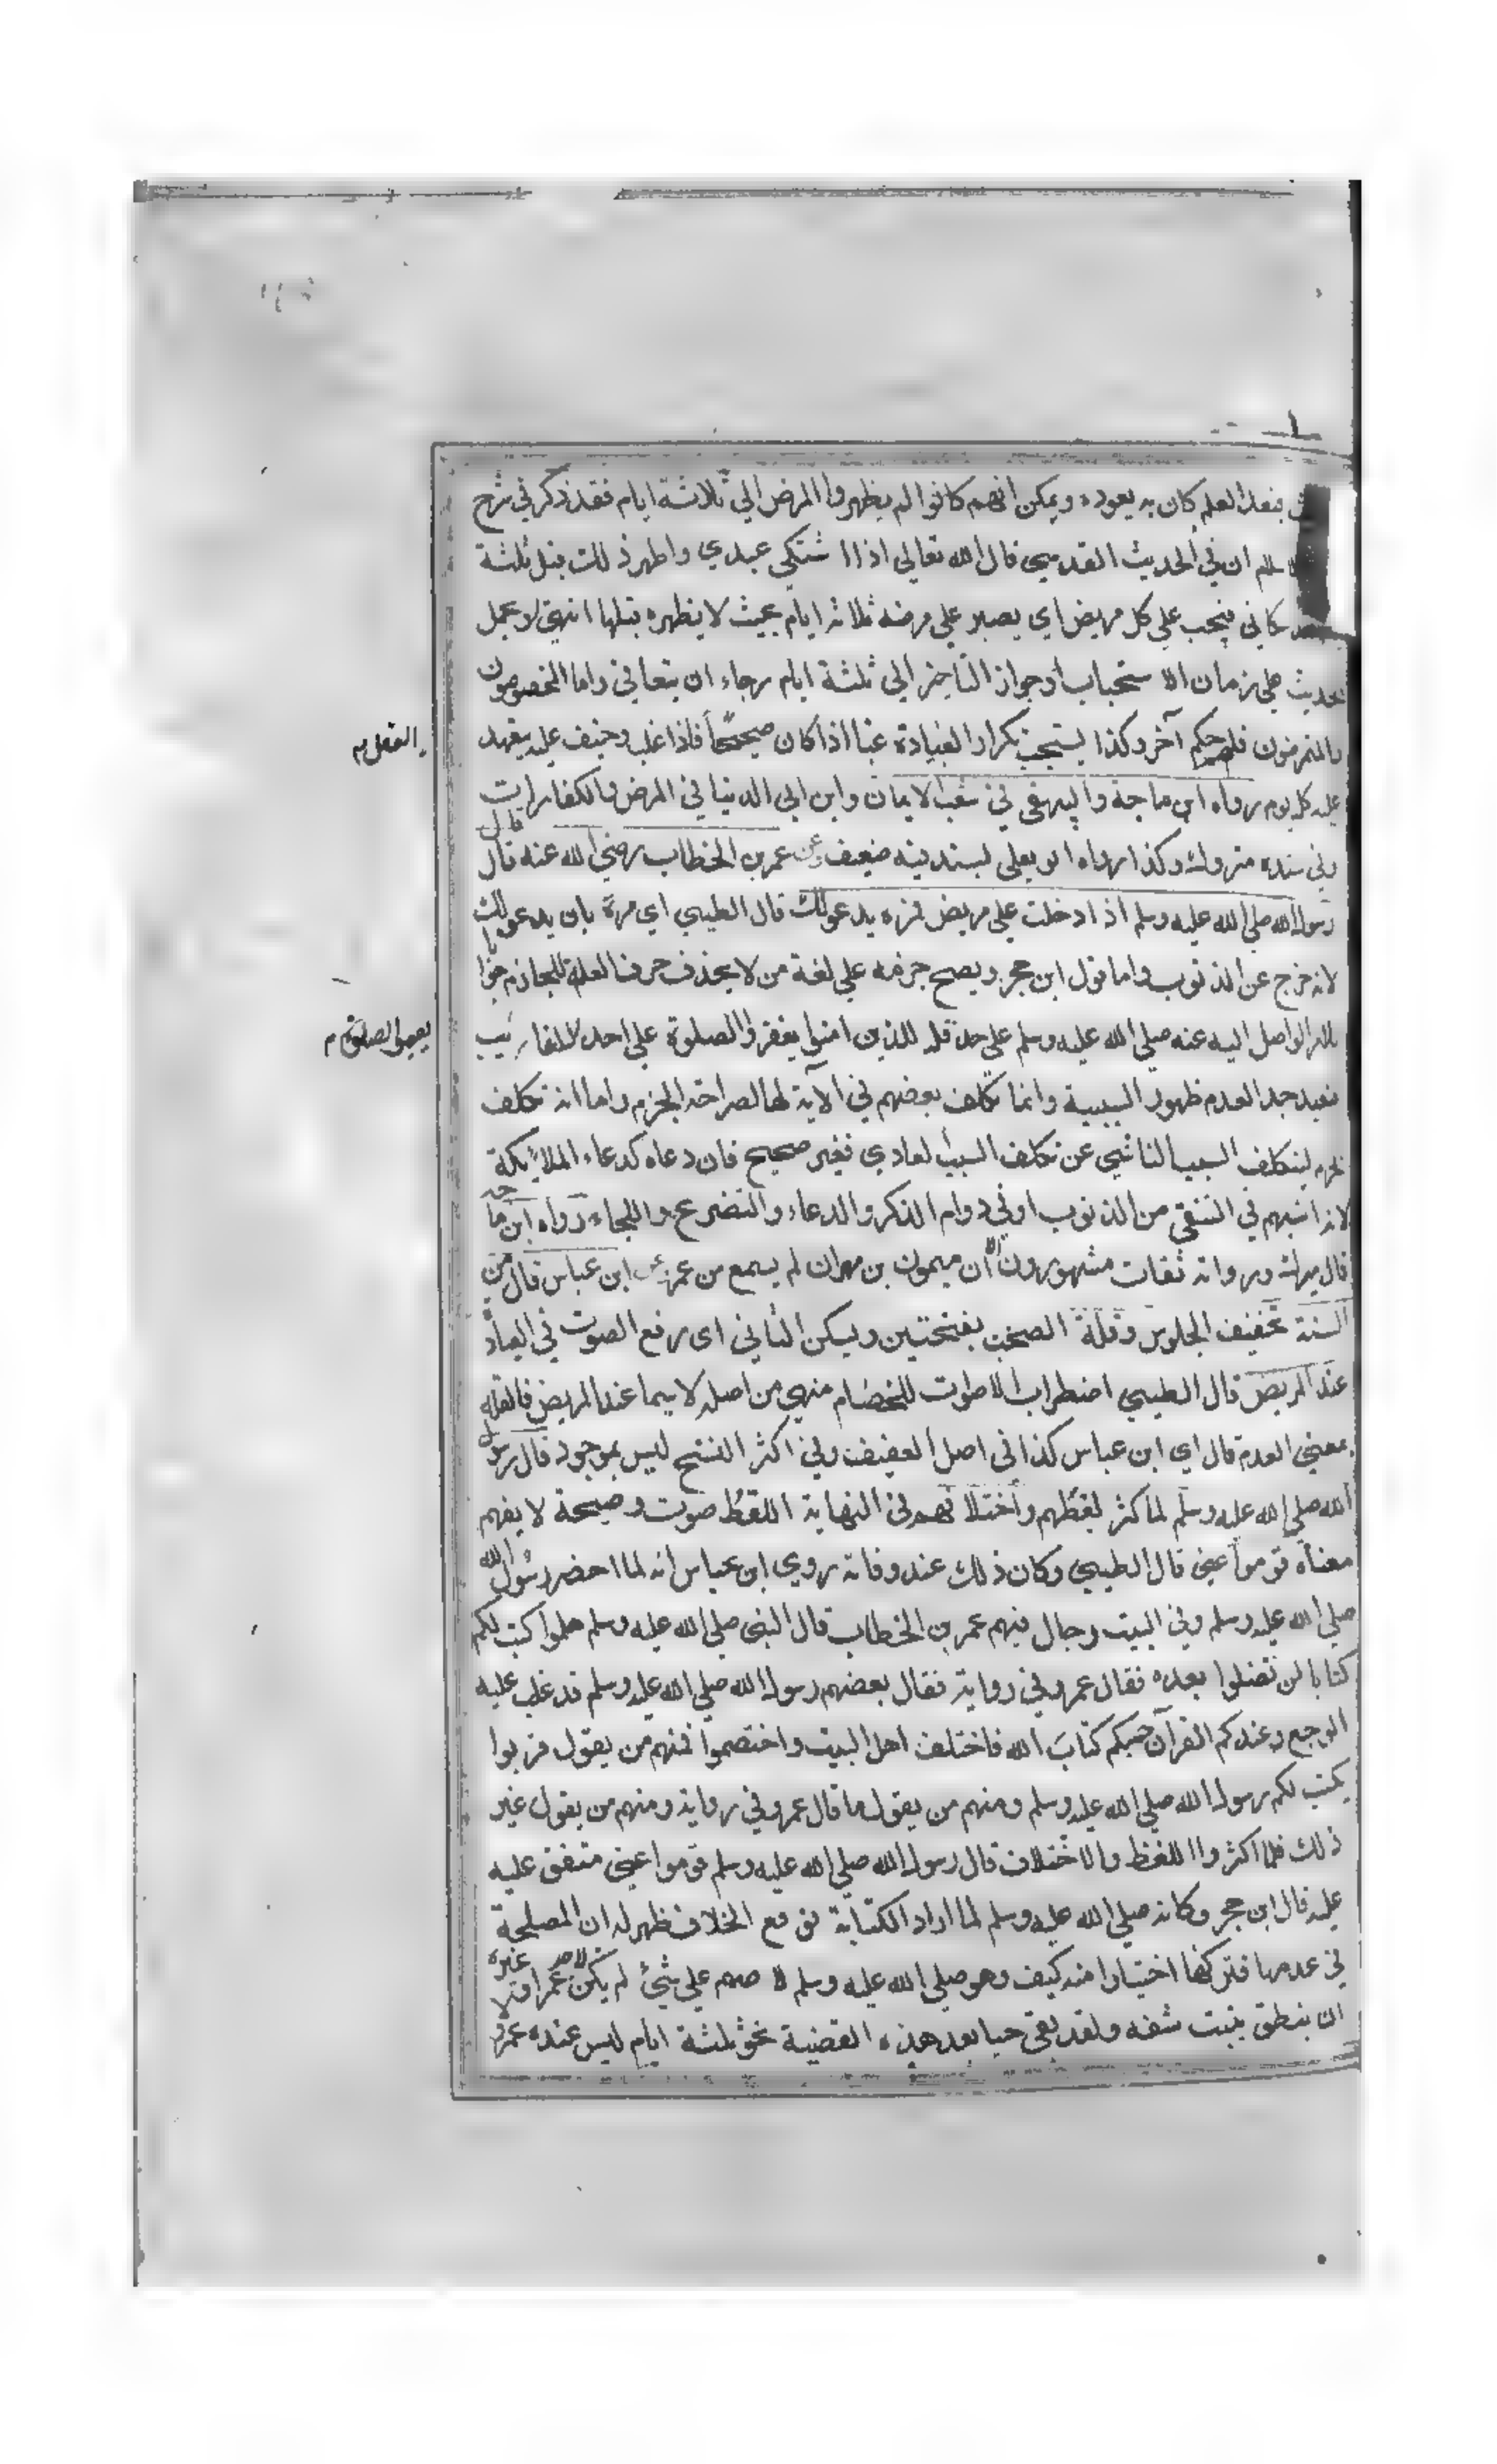 فبعد العلم كان به يعوده ويمكن انهم كانوا لم يظهروا المرض الي ثلاثة ايام فقد ذكر في شرح
ان في الحديث القدسي قال الله تعالي اذا اشتكي عبدي واظهر ذلك قبل ثلثة
شكاني فيجب علي كل مريض اي يصبر علي مرضه ثلاثة ايام بحيث لا يظهره قبلها انتهي لا يحمل
الحديث علي زمان الاستحباب او جواز التاخير الي ثلثة ايام رجاء ان يتعافي واما المخصوصون
والمتمرضون فلهم حكم آخر وكذا يستحب تكرار العيادة غبا اذا كان صحيح فاذا غلب وخيف عليه يتعهد
العقل م
عليه كل يوم رواه ابن ماجة والبيهقي في شعب الايمان وابن ابي الدنيا في المرض والكفارات
وفي سنده متروك وكذا رواه ابو يعلي بسند فيه ضعيف وعن عمر بن الخطاب رضي الله عنه قال قال
رسول الله صلي الله عليه وسلم اذا دخلت علي مريض فمره يدعو لك قال الطيبي اي مره بان يدعو لك
لانه خرج عن الذنوب واما قول ابن حجر ويصح جزمه علي لغة من لا يحذف حرف العلة للجازم جوابا
للامر الواصل اليه عنه صلي الله عليه وسلم علي حد قل للذين امنوا يغفروا الصلوة علي احد لا لقاريب
يقيموا الصلوة م
فبعيد جدا لعدم ظهور السببية وانما تكلف بعضهم في الآية لها لصراحة الجزم واما انه تكلف
لجزم ليتكلف السبب الناشي عن تكلف السبب العادي فغير صحيح فان دعاه كدعاء الملائكة
لانه اشبههم في التنقي من الذنوب او في دوام الذكر والدعاء والتضرع واللجاء رواه ابن ماجه
قال ميرك ورواته ثقات مشهورون الا ان ميمون بن مهران لم يسمع من عمر وعن ابن عباس قال من
السنة تخفيف الجلوس وقلة الصخب بفتحتين ويسكن الثاني اي رفع الصوت في العيادة
عند المريض قال الطيبي اضطراب الاصوات للخصام منهي من اصله لا سيما عند المريض فالقلة
بمعني العدم قال اي ابن عباس كذا في اصل العفيف وفي اكثر النسخ ليس بموجود قال رسول
الله صلي الله عليه وسلم لما كثر لغطهم واختلافهم في النهاية اللغط صوت وصيحة لا يفهم
معناه قوموا عني قال الطيبي وكان ذلك عند وفاته روي ابن عباس انه لما احضر رسول الله
صلي الله عليه وسلم وفي البيت رجال فيهم عمر بن الخطاب قال النبي صلي الله عليه وسلم هلموا اكتب لكم
كتابا لن تضلوا بعده فقال عمر وفي رواية فقال بعضهم رسول الله صلي الله عليه وسلم قد غلب عليه
الوجع وعندكم القرآن حسبكم كتاب الله فاختلف اهل البيت واختصموا فمنهم من يقول قربوا
يكتب لكم رسول الله صلي الله عليه وسلم ومنهم من يقول ما قال عمر وفي رواية ومنهم من يقول غير
ذلك فلما اكثروا اللغط والاختلاف قال رسول الله صلي الله عليه وسلم قوموا عني متفق عليه
عليه قال ابن حجر وكانه صلي الله عليه وسلم لما اراد الكتابة فوقع الخلاف ظهر له ان المصلحة
في عدمها فتركها اختيارا منه كيف وهو صلي الله عليه وسلم لو صمم علي شيء لم يكن لاحد عمر او غيره
ان ينطق ببنت شفه ولقد بقي حيا بعد هذه القضية نحو ثلثة ايام ليس عنده عمر و